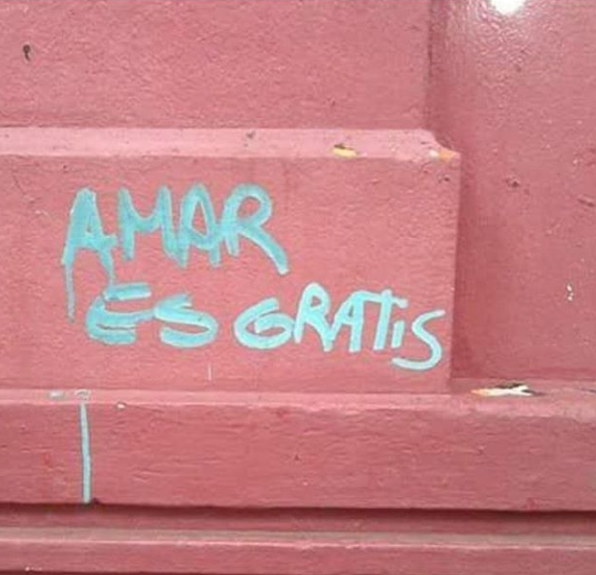 AMAR
ES GRATIS